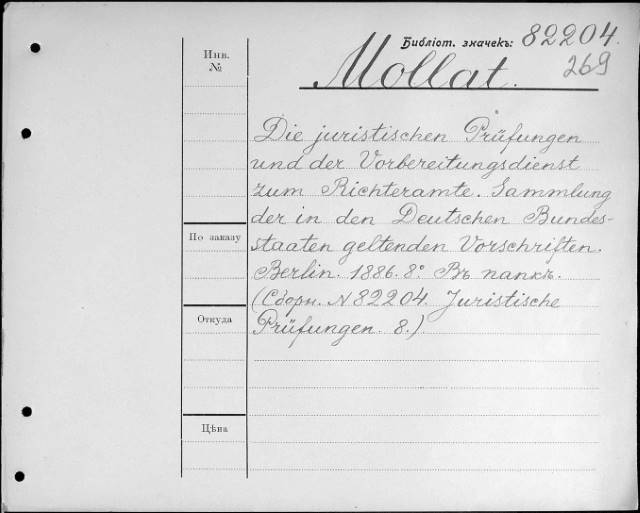 Библіот. значекъ: 82204.
269
Инв.
№
Mollat.
Die juristischen Prüfungen
und der Vorbereitungsdienst
zum Richteramte. Sammlung
der in den Deutschen Bundes-
staaten geltenden Vorschriften.
Berlin. 1886. 8° Въ папкѣ.
(Сборн. N 82204. Juristische
Prüfungen. 8.)
По заказу
Откуда
Цѣна